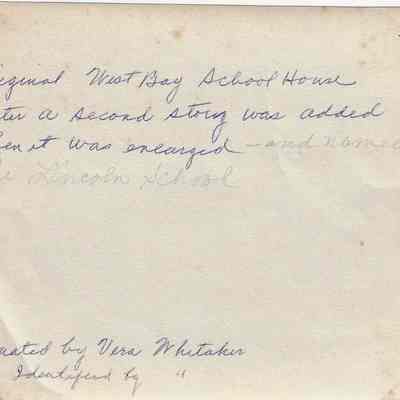 riginal West Bay School House
ter a second story was added
hen it was enlarged - and named
e Lincoln School
nated by Vera Whitaker
Identified by "